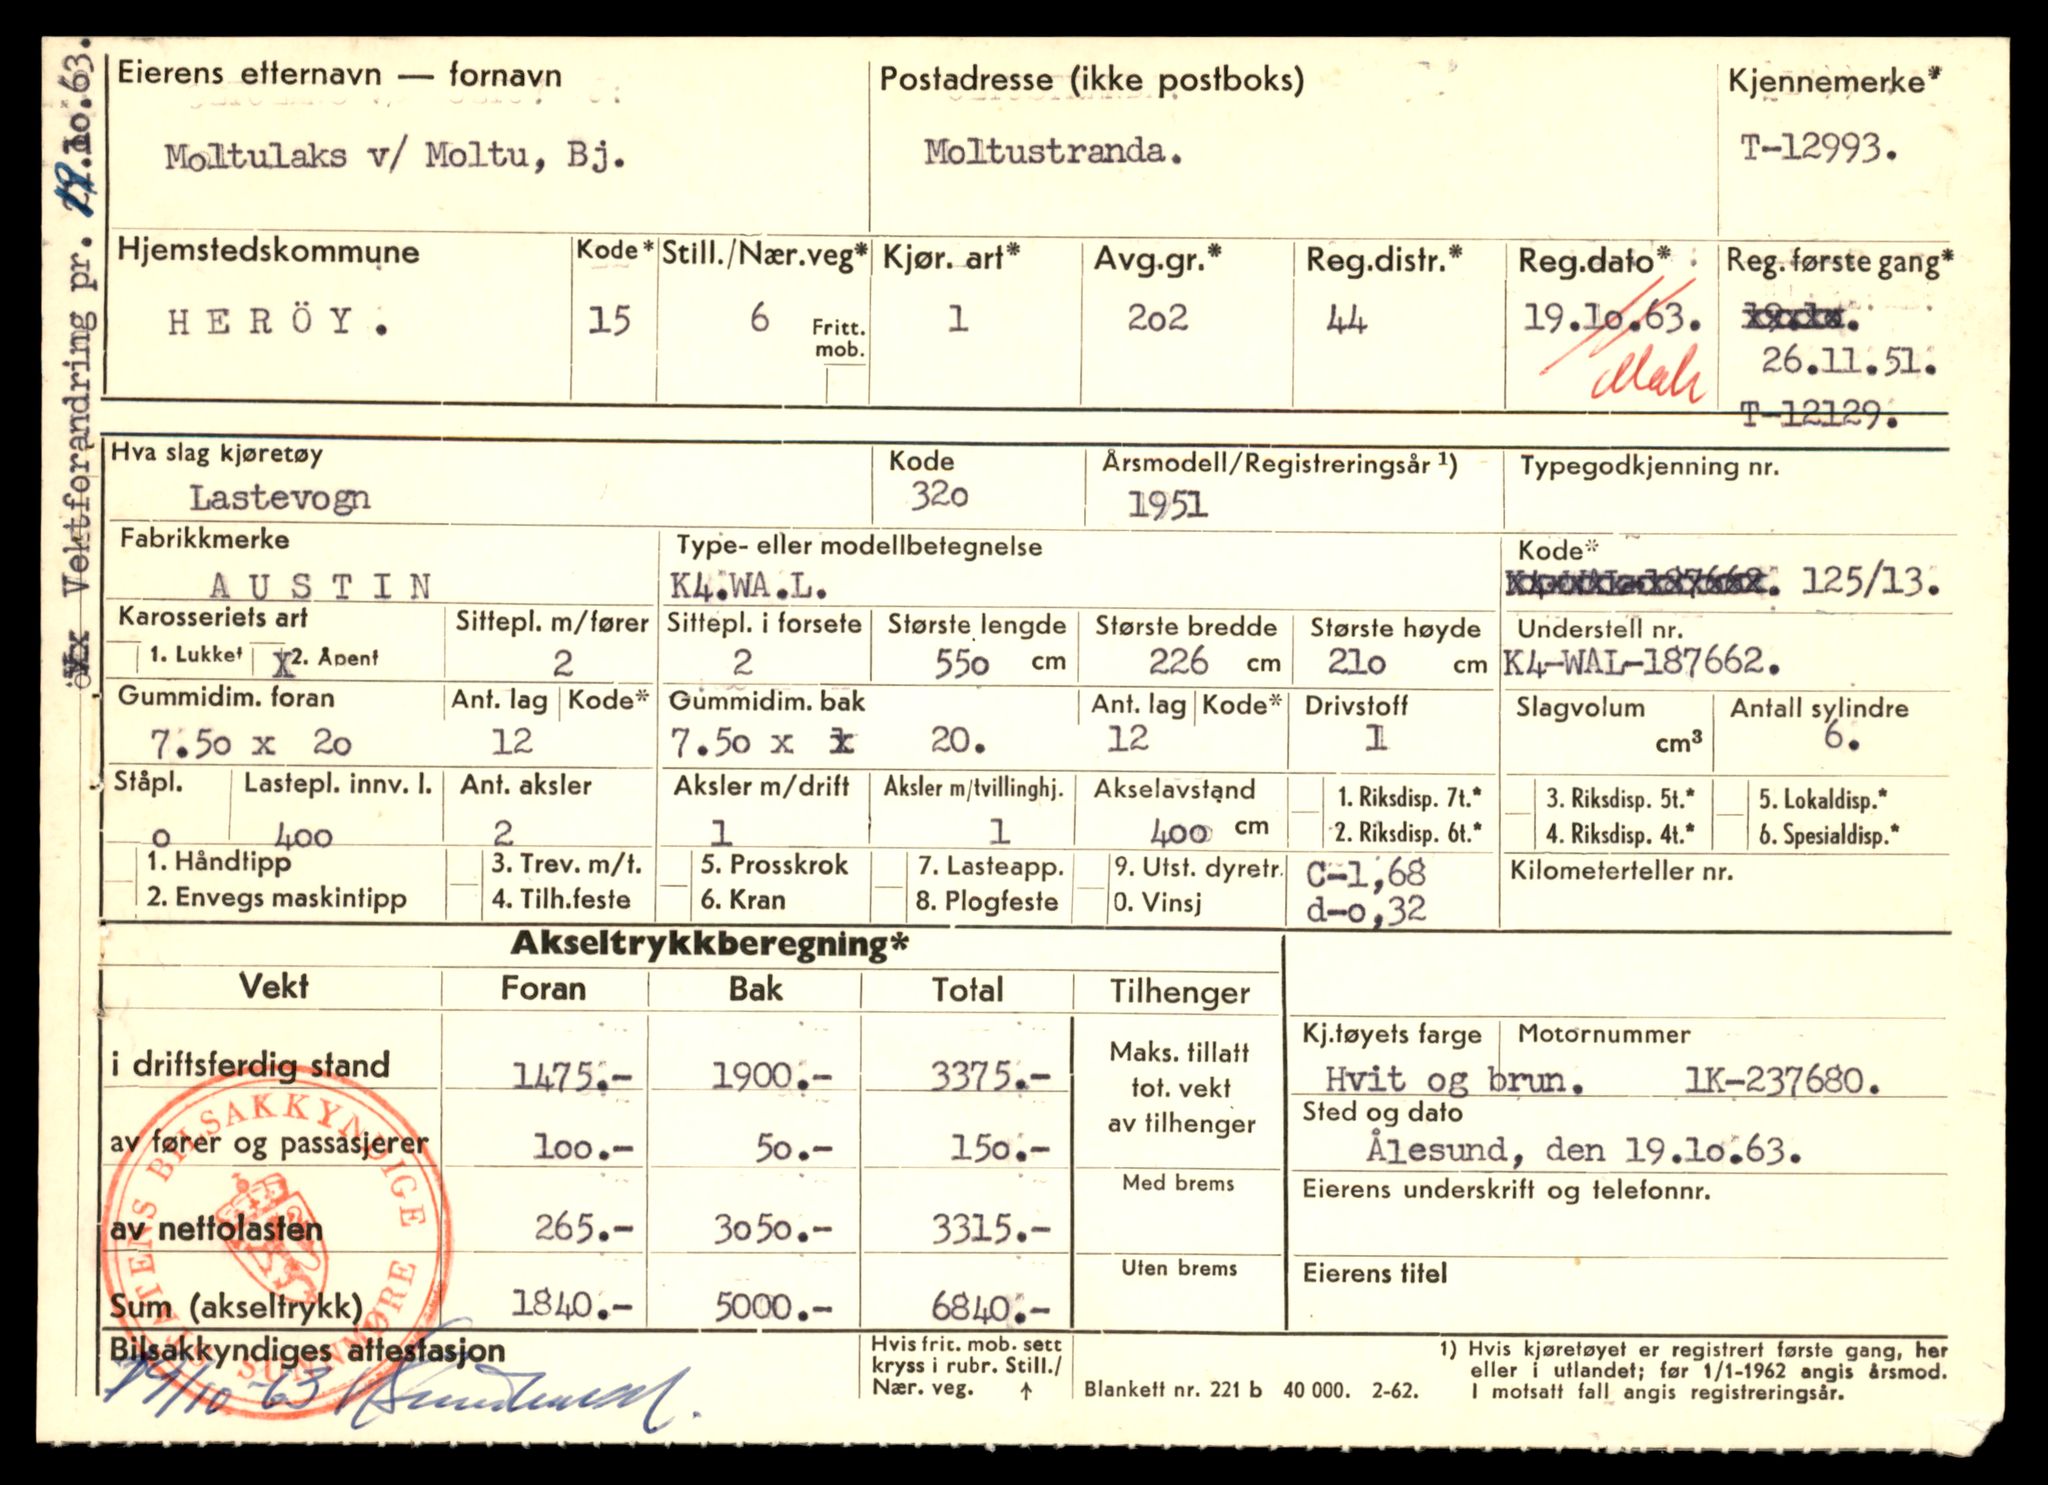 Vektforandring pr. 19.10.63.
Eierens etternavn — fornavn
Postadresse (ikke postboks)
Kjennemerke*
Moltulaks v/ Moltu, Bj.
Moltustranda.
T-12993.
Hjemstedskommune
Kode*
Still./Nær.veg*
Kjør. art*
Avg.gr.*
Reg.distr.*
Reg.dato*
Reg. første gang*
HERÖY.
15
6
Fritt. mob.
1
202
44
19.10.63.
26.11.51.
T-12129.
Hva slag kjøretøy
Kode
Årsmodell/Registreringsår ¹)
Typegodkjenning nr.
Lastevogn
320
1951
Fabrikkmerke
Type- eller modellbetegnelse
Kode*
AUSTIN
K4.WA.L.
K4-WAL-187662. 125/13.
Karosseriets art
Sittepl. m/fører
Sittepl. i forsete
Største lengde
Største bredde
Største høyde
Understell nr.
1. Lukket
X 2. Åpent
2
2
550 cm
226 cm
210 cm
K4-WAL-187662.
Gummidim. foran
Ant. lag
Kode*
Gummidim. bak
Ant. lag
Kode*
Drivstoff
Slagvolum
Antall sylindre
7.50 x 20
12
7.50 x 20.
12
1
cm³
6.
Ståpl.
Lastepl. innv. l.
Ant. aksler
Aksler m/drift
Aksler m/tvillinghj.
Akselavstand
1. Riksdisp. 7t.*
3. Riksdisp. 5t.*
5. Lokaldisp.*
0
400
2
1
1
400 cm
2. Riksdisp. 6t.*
4. Riksdisp. 4t.*
6. Spesialdisp.*
1. Håndtipp
3. Trev. m/t.
5. Prosskrok
7. Lasteapp.
9. Utst. dyretr.
C-1,68
Kilometerteller nr.
2. Envegs maskintipp
4. Tilh.feste
6. Kran
8. Plogfeste
0. Vinsj
d-0,32
Akseltrykkberegning*
Vekt
Foran
Bak
Total
Tilhenger
i driftsferdig stand
1475.-
1900.-
3375.-
Maks. tillatt
tot. vekt
av tilhenger
Kj.tøyets farge
Motornummer
Hvit og brun.
1K-237680.
av fører og passasjerer
100.-
50.-
150.-
Sted og dato
Ålesund, den 19.10.63.
Med brems
Eierens underskrift og telefonnr.
av nettolasten
265.-
3050.-
3315.-
Uten brems
Eierens titel
Sum (akseltrykk)
1840.-
5000.-
6840.-
STATENS BILSAKKYNDIGE
SUNNMØRE
Bilsakkyndiges attestasjon
19/10-63
Hvis frit. mob. sett
kryss i rubr. Still./
Nær. veg. ↑
Blankett nr. 221 b 40 000. 2-62.
1) Hvis kjøretøyet er registrert første gang, her
eller i utlandet; før 1/1-1962 angis årsmod.
I motsatt fall angis registreringsår.